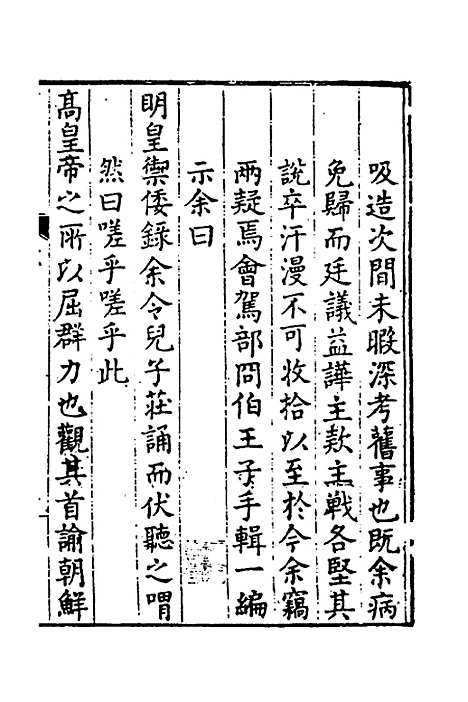 吸造次間未暇深考舊事也既余病
免歸而廷議益譁主欵主戰各堅其
說卒汗漫不可收拾以至於今余竊
兩疑焉會駕部冏伯王子手輯一編
示余曰
明皇禦倭錄余令兒子莊誦而伏聽之喟
然曰嗟乎嗟乎此
高皇帝之所以屈群力也觀其首諭朝鮮